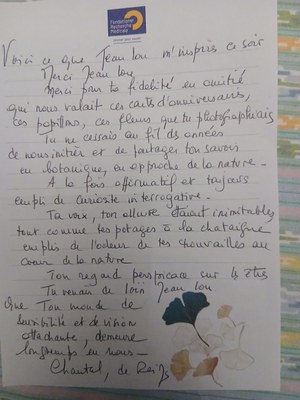 Fondation
Recherche
Médicale
Voici ce que Jean Lou m'inspire ce soir
Merci Jean Lou,
Merci pour ta fidélité en amitié
qui nous valait ces carts d'anniversaires,
ces papillons, ces fleurs que tu photographiais
Tu ne cessais au fil des années
de nous initier et de partager ton savoir
en botanique, en approche de la nature -
A la fois affirmatif et toujours
empli de curiosité interrogative.
Ta voix, ton allure étaient inimitables
tout comme tes potages à la chataigne
emplis de l'odeur de tes trouvailles au
coeur de la nature
Ton regard perspicace sur les êtres
Tu venais de loin Jean Lou
Que Ton monde de
sensibilité et de vision
attachante, demeure
longtemps en nous -
Chantal, de